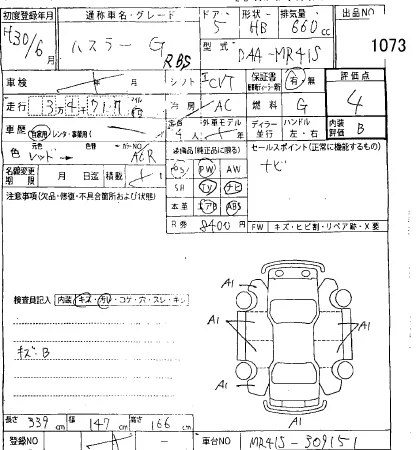 初度登録年月 通称車名・グレード ドア 形状 排気量 出品NO
H30/6月 ハスラー G RBS 5 HB 660cc 1073
型式 DAA-MR41S
車検 年 月 シフト I CVT 保証書 有・無 評価点
走行 冷房 AC 燃料 G 4
車歴 自家用・レンタ・事業用 定員 4人 外車モデル ディーラー・並行 ハンドル 左・右 内装評価 B
元色 色替 カラーNO
色 レッド → ACR 装備品(純正品に限る) セールスポイント(正常に機能するもの)
名義変更期限 月 日迄 積載 PS PW AW ナビ
注意事項(欠品・修復・不具合箇所および状態) SH TV ナビ
本革 エアB ABS
R券 8400円 FW キズ・ヒビ割・リペア跡・X要
A1 A1
検査員記入 内装 キズ・汚レ・コゲ・穴・スレ・キレ
A1 A1
キズ:B
A1
長さ 339cm 幅 147cm 高さ 166cm
登録NO 車台NO MR41S-309151